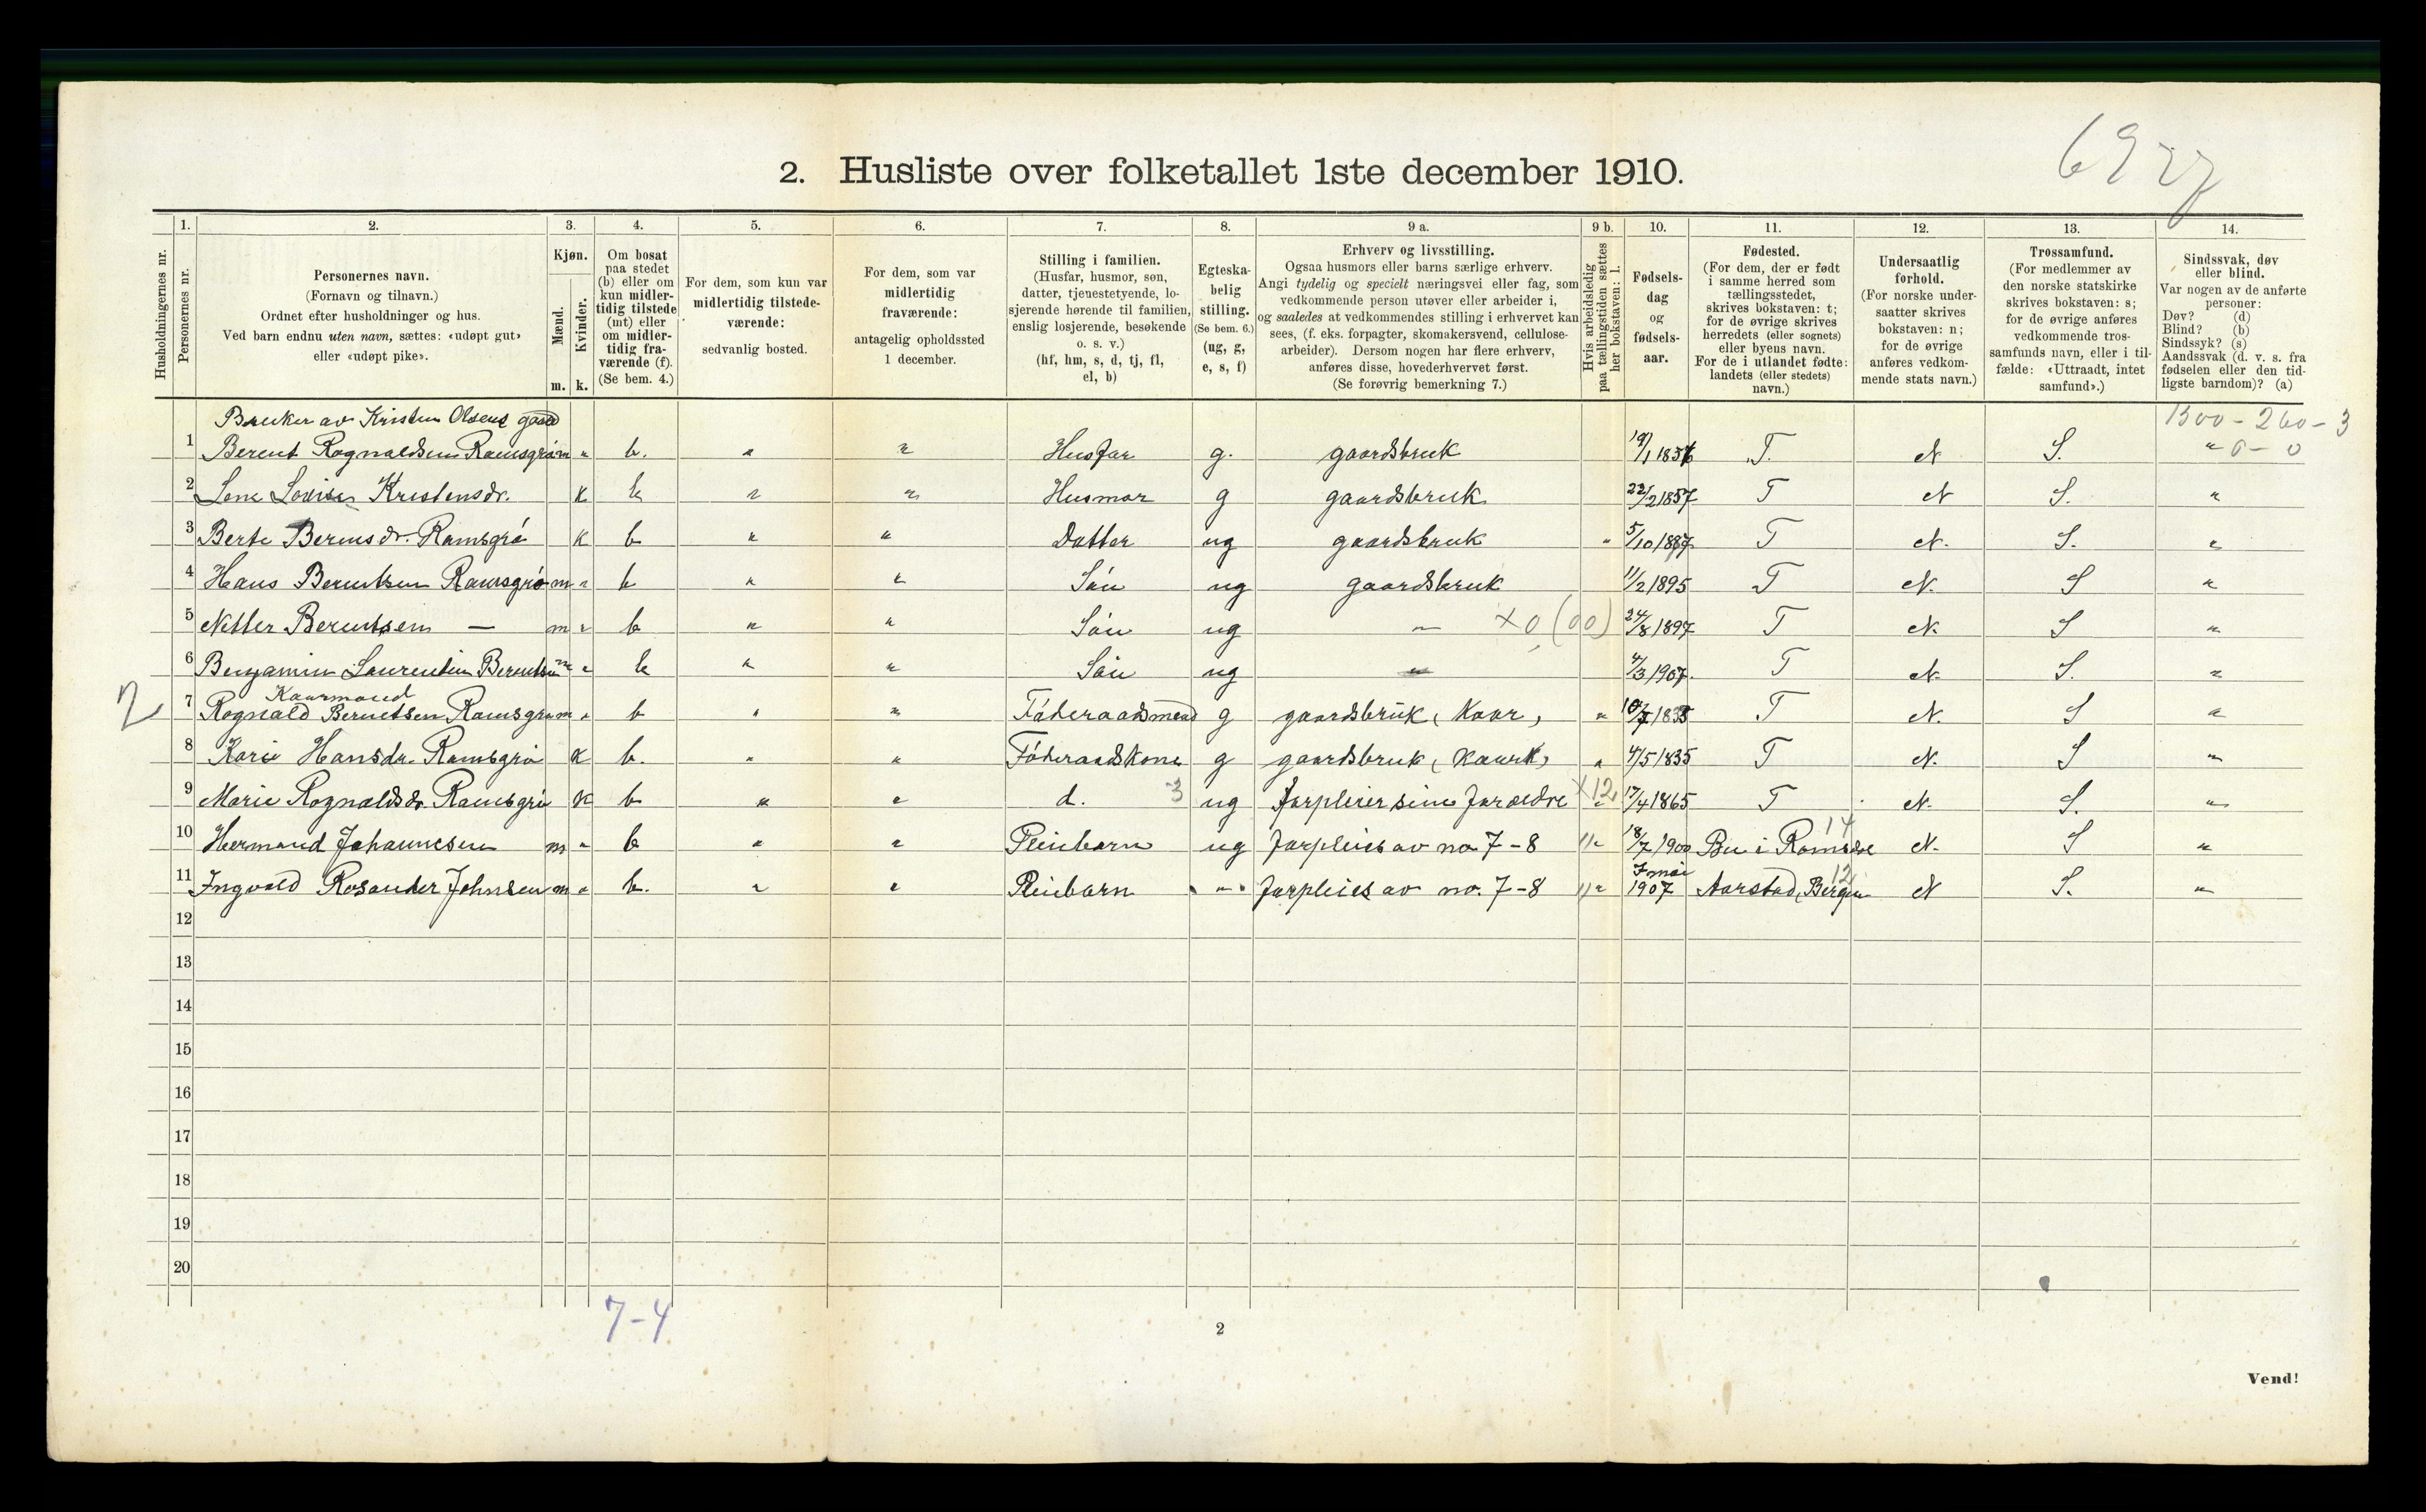 6927
2. Husliste over folketallet 1ste december 1910.
Husholdningernes nr.
1. Personernes nr.
2.
Personernes navn.
(Fornavn og tilnavn.)
Ordnet efter husholdninger og hus.
Ved barn endnu uten navn, sættes: «udøpt gut»
eller «udøpt pike».
3.
Kjøn.
Mænd. m.
Kvinder. k.
4.
Om bosat
paa stedet
(b) eller om
kun midler-
tidig tilstede
(mt) eller
om midler-
tidig fra-
værende (f).
(Se bem. 4.)
5.
For dem, som kun var
midlertidig tilstede-
værende:
sedvanlig bosted.
6.
For dem, som var
midlertidig
fraværende:
antagelig opholdssted
1 december.
7.
Stilling i familien.
(Husfar, husmor, søn,
datter, tjenestetyende, lo-
sjerende hørende til familien,
enslig losjerende, besøkende
o. s. v.)
(hf, hm, s, d, tj, fl,
el, b)
8.
Egteska-
belig
stilling.
(Se bem. 6.)
(ug, g,
e, s, f)
9 a.
Erhverv og livsstilling.
Ogsaa husmors eller barns særlige erhverv.
Angi tydelig og specielt næringsvei eller fag, som
vedkommende person utøver eller arbeider i,
og saaledes at vedkommendes stilling i erhvervet kan
sees, (f. eks. forpagter, skomakersvend, cellulose-
arbeider). Dersom nogen har flere erhverv,
anføres disse, hovederhvervet først.
(Se forøvrig bemerkning 7.)
9 b.
Hvis arbeidsledig
paa tællingstiden sættes
her bokstaven: l.
10.
Fødsels-
dag
og
fødsels-
aar.
11.
Fødested.
(For dem, der er født
i samme herred som
tællingsstedet,
skrives bokstaven: t;
for de øvrige skrives
herredets (eller sognets)
eller byens navn.
For de i utlandet fødte:
landets (eller stedets)
navn.)
12.
Undersaatlig
forhold.
(For norske under-
saatter skrives
bokstaven: n;
for de øvrige
anføres vedkom-
mende stats navn.)
13.
Trossamfund.
(For medlemmer av
den norske statskirke
skrives bokstaven: s;
for de øvrige anføres
vedkommende tros-
samfunds navn, eller i til-
fælde: «Uttraadt, intet
samfund».)
14.
Sindssvak, døv
eller blind.
Var nogen av de anførte
personer:
Døv? (d)
Blind? (b)
Sindssyk? (s)
Aandssvak (d. v. s. fra
fødselen eller den tid-
ligste barndom)? (a)
Bruker av Kristen Olsens gaard 1300 - 260 - 3
1 Berent Rognaldsen Ramsgrø m " b. " " Husfar g. gaardsbruk T. N S. " 0 - 0
2 Lene Lovise Kristensdr. K b " " Husmor g gaardsbruk 22/2 1857 T N S. "
3 Berte Berensdr. Ramsgrø K b " " Datter ug gaardsbruk " 5/10 1887 T N. S. "
4 Hans Berentsen Ramsgrø m " b " " Søn ug gaardsbruk 11/2 1895 T N. S "
5 Berentsen — m " b " " Søn ug — X0 (00) 24/8 1897 T N. S "
6 Benjamin Laurentin Berentsen m " b " " Søn ug 4/3 1907. T N. S. "
2 Kaarmand
7 Rognald Berentsen Ramsgrø m " b " " Føderaadsmand g gaardsbruk (Kaar) " T N. S "
8 Kari Hansdr. Ramsgrø K b. " " Føderaadskone g gaardsbruk (Kaark) " 4/5 1835 T N. S "
9 Marie Rognaldsdr. Ramsgrø K b " " d. 3 ug forpleier sine foreldre X12 " 17/4 1865 T N. S. "
10 Hermand Johannesen m " b " " Pleiebarn ug forpleies av no 7-8 " 18/7 1900 14 Bu i Romsdal N. S "
11 Ingvald Rosander Johnsen m " b. " " Pleiebarn " forpleies av no. 7-8 " 7 mai 1907 12 Aarstad, Bergen N S. "
12
13
14
15
16
17
18
19
20
7-4
2
Vend!